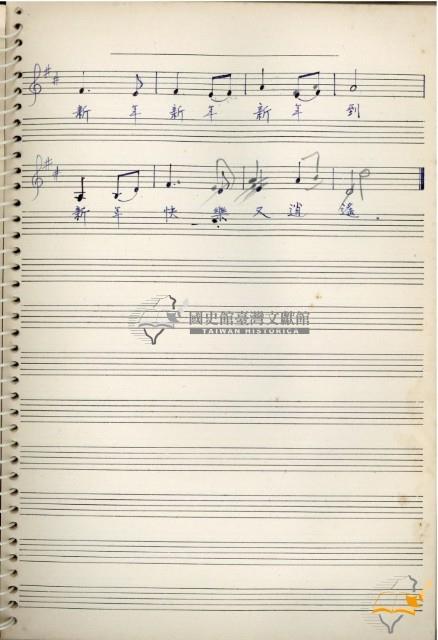 新年新年新年到
國史館臺灣文獻館
TAIWAN HISTORICA
新年快樂又逍遙.